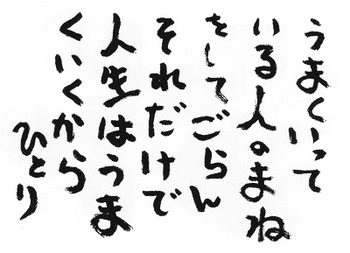 うまくいって
いる人のまね
をしてごらん
それだけで
人生はうま
くいくから
ひとり